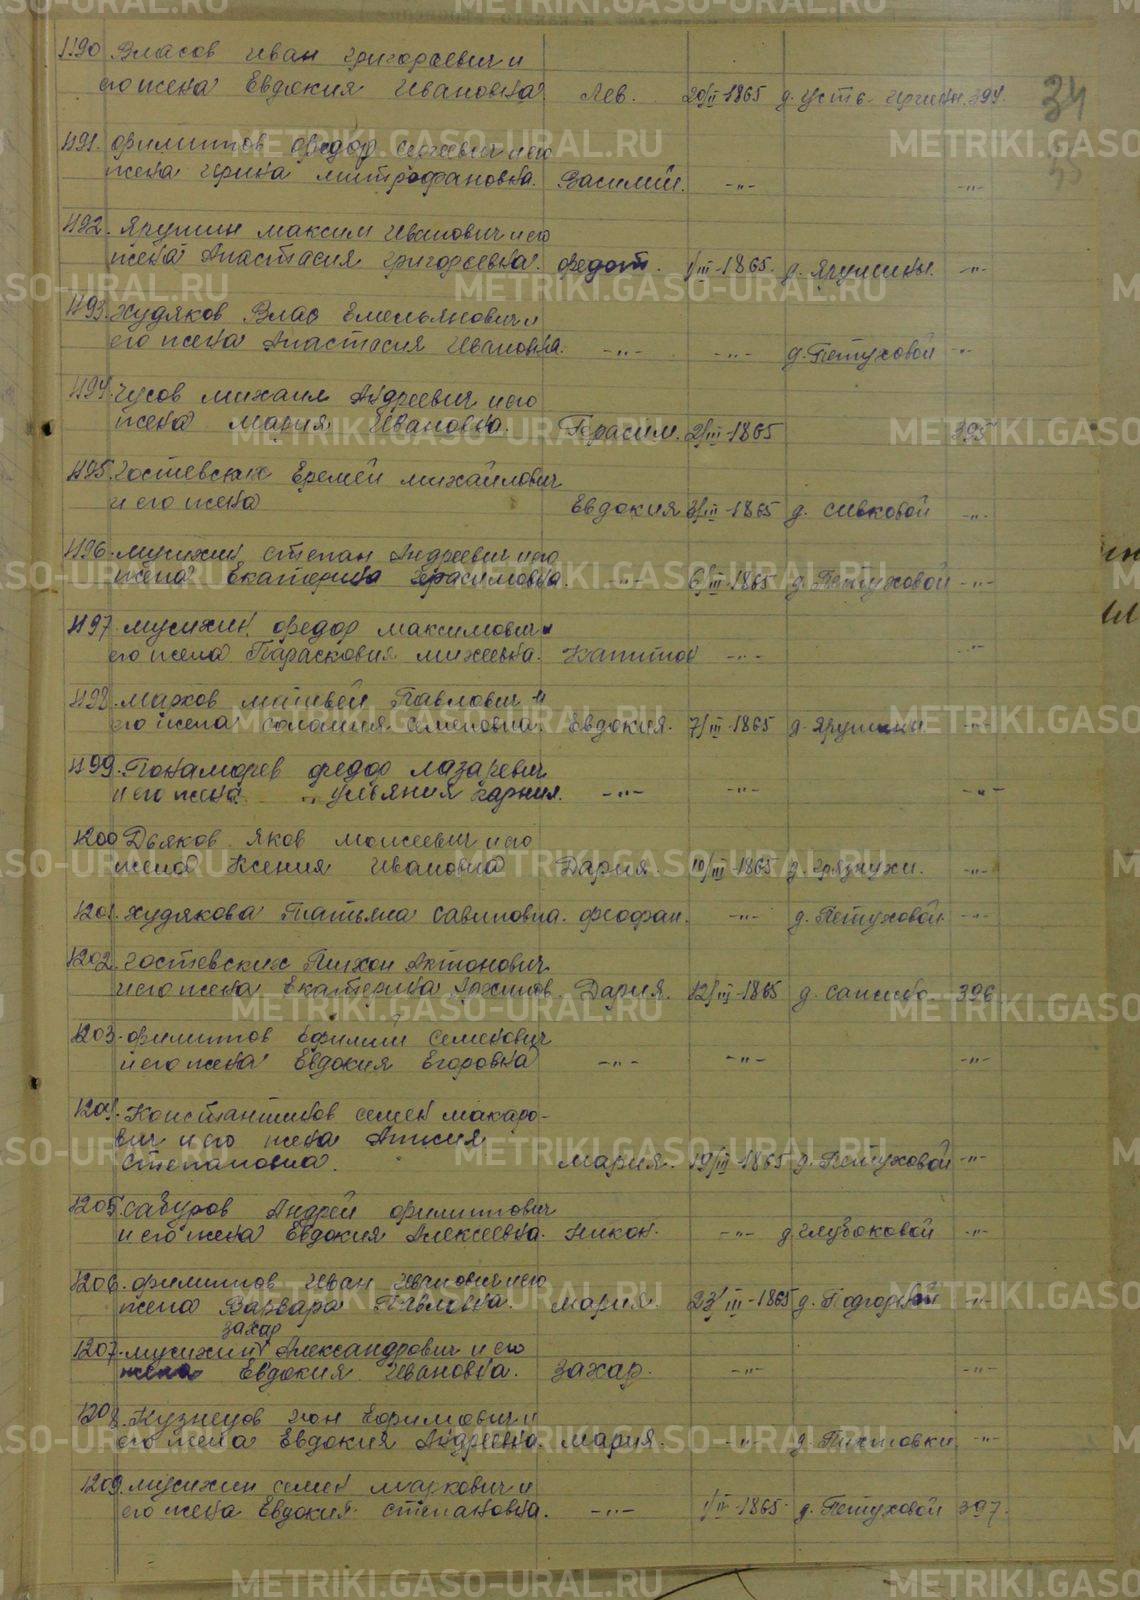 1190 Власов Иван Григорьевич и
его жена Евдокия Ивановна Лев. 20/II-1865 д. Усть- 394.
34
1191. Филиппов Федор Сергеевич и его
жена Ирина Митрофановна. Василий. -"- -"-
1192. Ярушин Максим Иванович и его
жена Анастасия Григорьевна. Федот. 1/III-1865. д. Ярушины. -"-
1193. Худяков Влас Емельянович и
его жена Анастасия Ивановна. -"- -"- д. Петуховой -"-
1194. Чусов Михаил Андреевич и его
жена Мария Ивановна. Герасим. 2/III-1865 395
1195. Гостевских Еремей Михайлович
и его жена Евдокия 3/III-1865 д. Сивковой -"-
1196. Мусихин Степан Андреевич и его
жена Екатерина Герасимовна. -"- 6/III-1865 д. Петуховой -"-
1197. Мусихин Федор Максимович и
его жена Парасковия Михеевна. Капитон -"- -"-
1198. Матвей Павлович и
его жена Соломия Семеновна. Евдокия. 7/III-1865 д. Ярушины -"-
1199. Понаморев Федор Лазаревич
и его жена Ульяния -"- -"- -"-
1200 Дьяков Яков Моисеевич и его
жена Ксения Ивановна Дария. 10/III-1865 д. Грязнухи. -"-
1201. Худякова Татьяна Савиновна. Феофан. -"- д. Петуховой. -"-
1202. Гостевских Тихон Антонович
и его жена Екатерина Архипов Дария. 12/III-1865 д. 396
1203. Филиппов Ефимий Семенович
и его жена Евдокия Егоровна -"- -"- -"-
1204. Константинов Семен Макаро-
вич и его жена Анисия
Степановна. Мария. 19/III-1865 д. Петуховой -"-
1205. Сабуров Андрей Филиппович
и его жена Евдокия Алексеевна. Никон. -"- д Глубоковой -"-
1206. Филиппов Иван Иванович и его
жена Варвара Павловна. Мария. 23/III-1865 д. Подгорной -"-
захар
1207. Мусихин Александрович и его
жена Евдокия Ивановна. Захар. -"- -"-
1208. Кузнецов Ион Ефимович и
его жена Евдокия Андреевна. Мария. -"- д. Пихтовки -"-
1209. Мусихин Семен Маркович и
его жена Евдокия Степановна. -"- 1/IV-1865. д. Петуховой 397.
METRIKI.GASO-URAL.RU